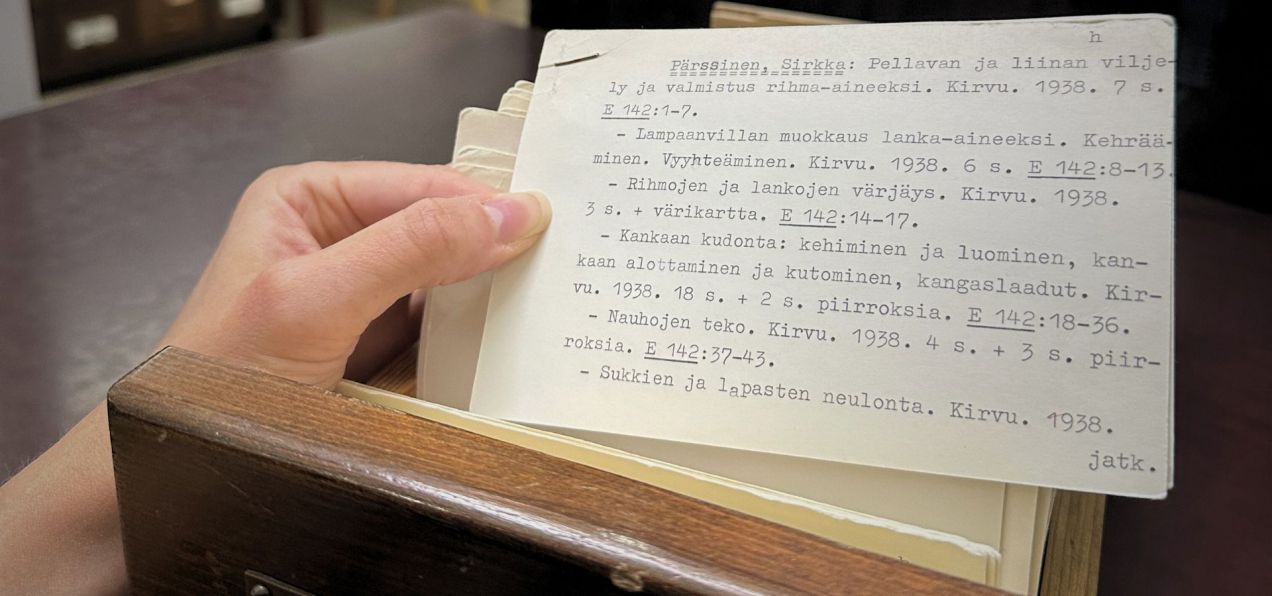 h
Pärssinen, Sirkka: Pellavan ja liinan vilje-
ly ja valmistus rihma-aineeksi. Kirvu. 1938. 7 s.
E 142:1-7.
- Lampaanvillan muokkaus lanka-aineeksi. Kehrää-
minen. Vyyhteäminen. Kirvu. 1938. 6 s. E 142:8-13.
- Rihmojen ja lankojen värjäys. Kirvu. 1938.
3 s. + värikartta. E 142:14-17.
- Kankaan kudonta: kehiminen ja luominen, kan-
kaan alottaminen ja kutominen, kangaslaadut. Kir-
vu. 1938. 18 s. + 2 s. piirroksia. E 142:18-36.
- Nauhojen teko. Kirvu. 1938. 4 s. + 3 s. piir-
roksia. E 142:37-43.
- Sukkien ja lapasten neulonta. Kirvu. 1938.
jatk.